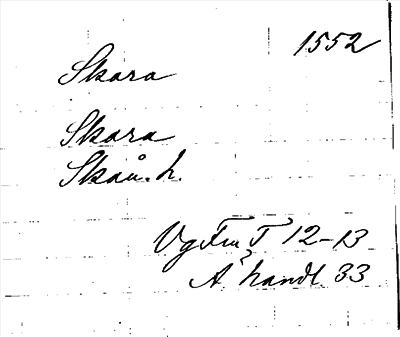 1552
Skara
Skara
Skån. h.
VgFmT 12-13
Å handl 33